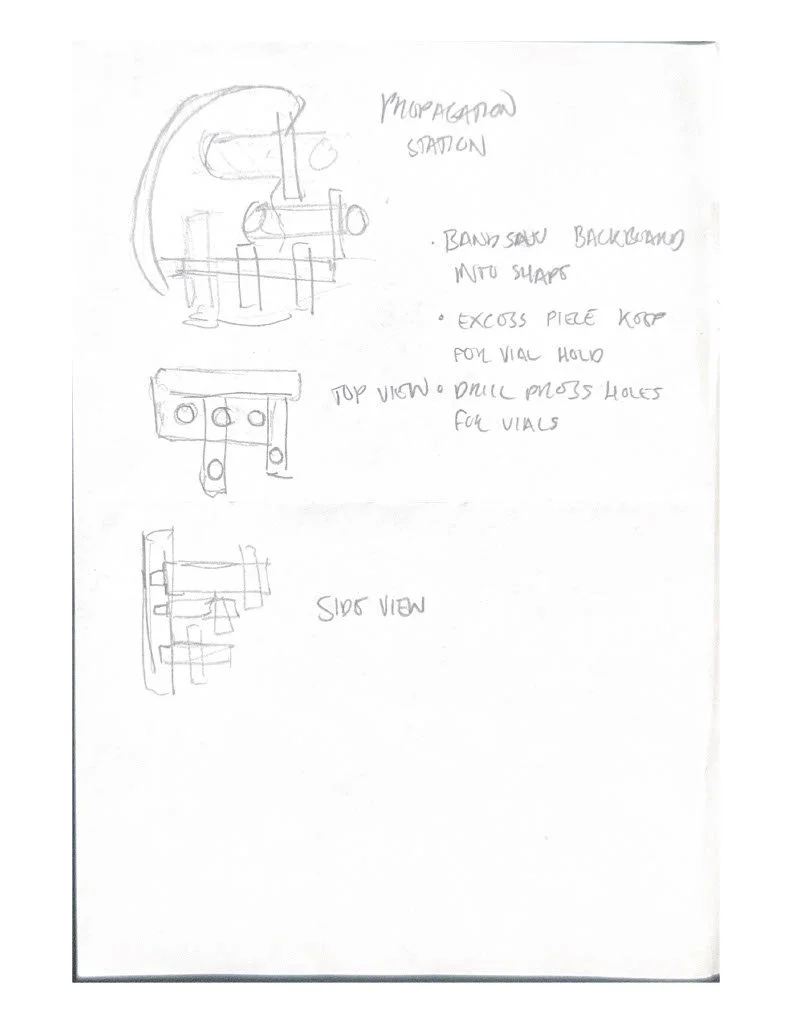 PROPAGATION
STATION
• BANDSAW BACKBOARD
INTO SHAPE
• EXCESS PIECE KEEP
FOR VIAL HOLD
TOP VIEW • DRILL PRESS HOLES
FOR VIALS
SIDE VIEW